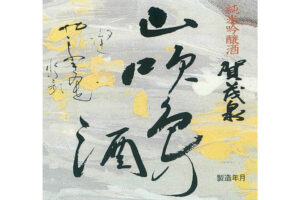 純米吟醸酒
賀茂泉
山吹色の酒
製造年月